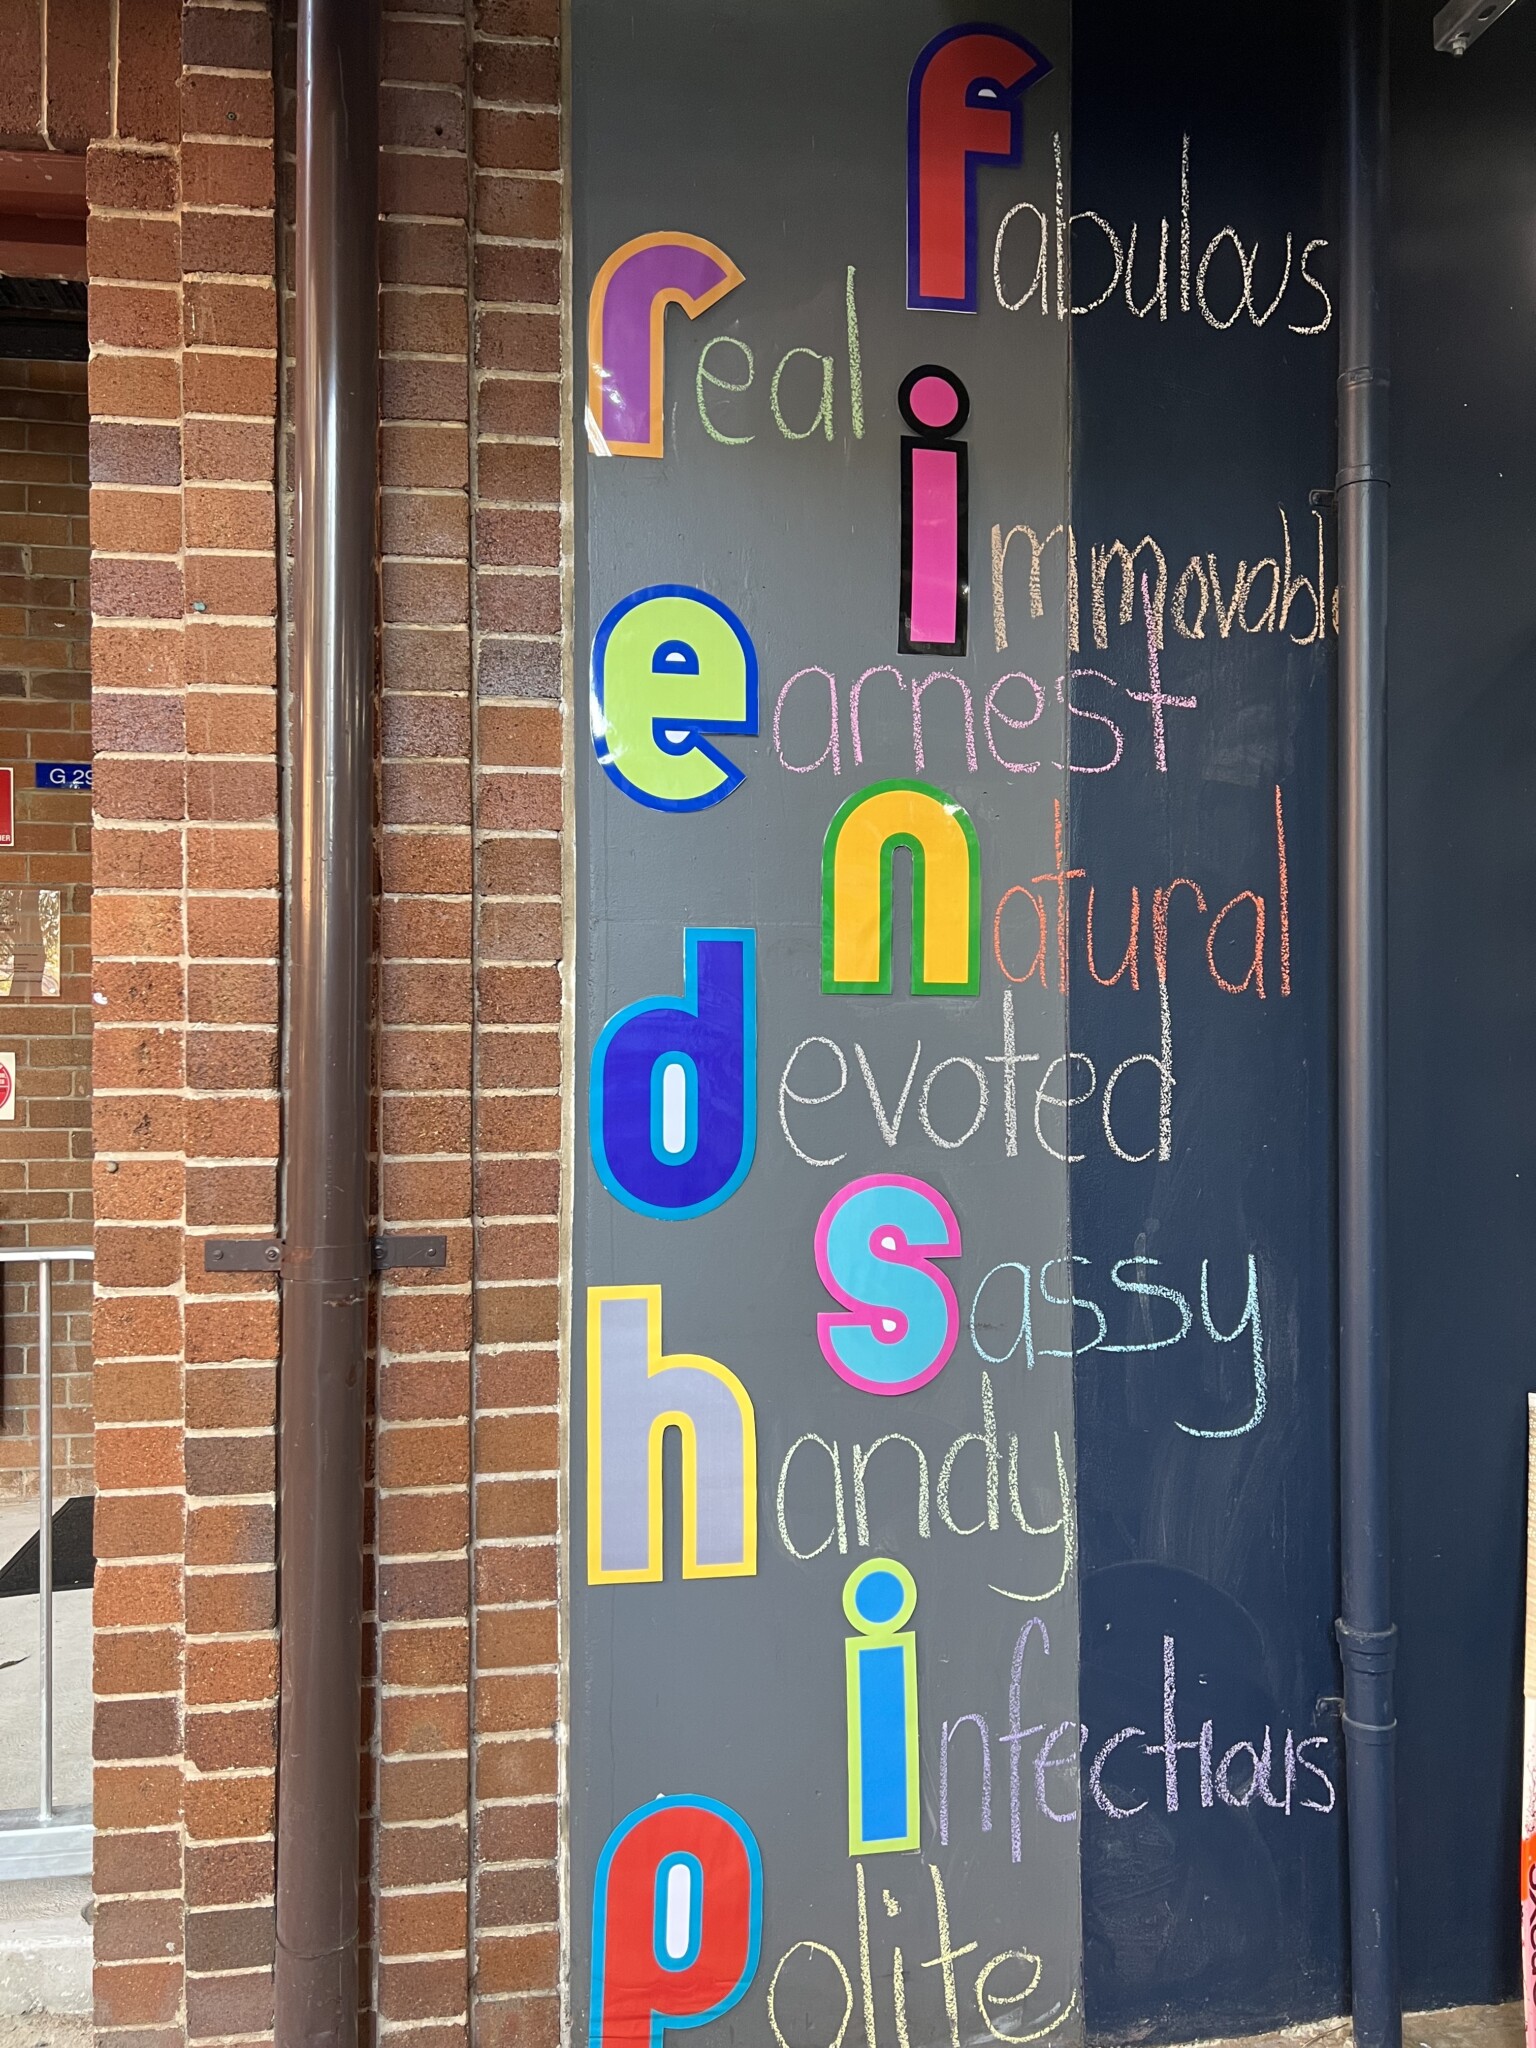 fabulous
real
immovable
earnest
natural
devoted
sassy
handy
infectious
polite
G 29